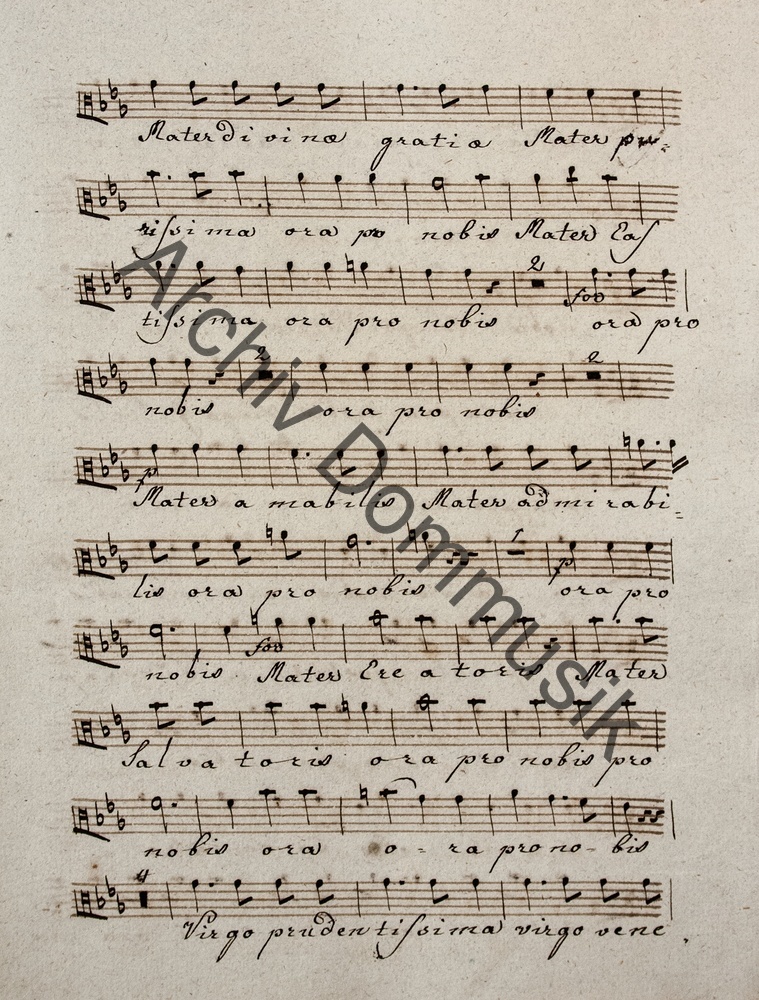 Mater di vinæ gratiæ Mater pu-
rissima ora pro nobis Mater Cas
tissima ora pro nobis ora pro
2
for
nobis ora pro nobis
2 2
p
Mater a mabilis Mater admi rabi-
lis ora pro nobis ora pro
1
p
nobis Mater Cre a toris Mater
for
Salva toris ora pro nobis pro
nobis ora o - ra pro no - bis
4
Virgo pruden tissima virgo vene
Archiv Dommusik